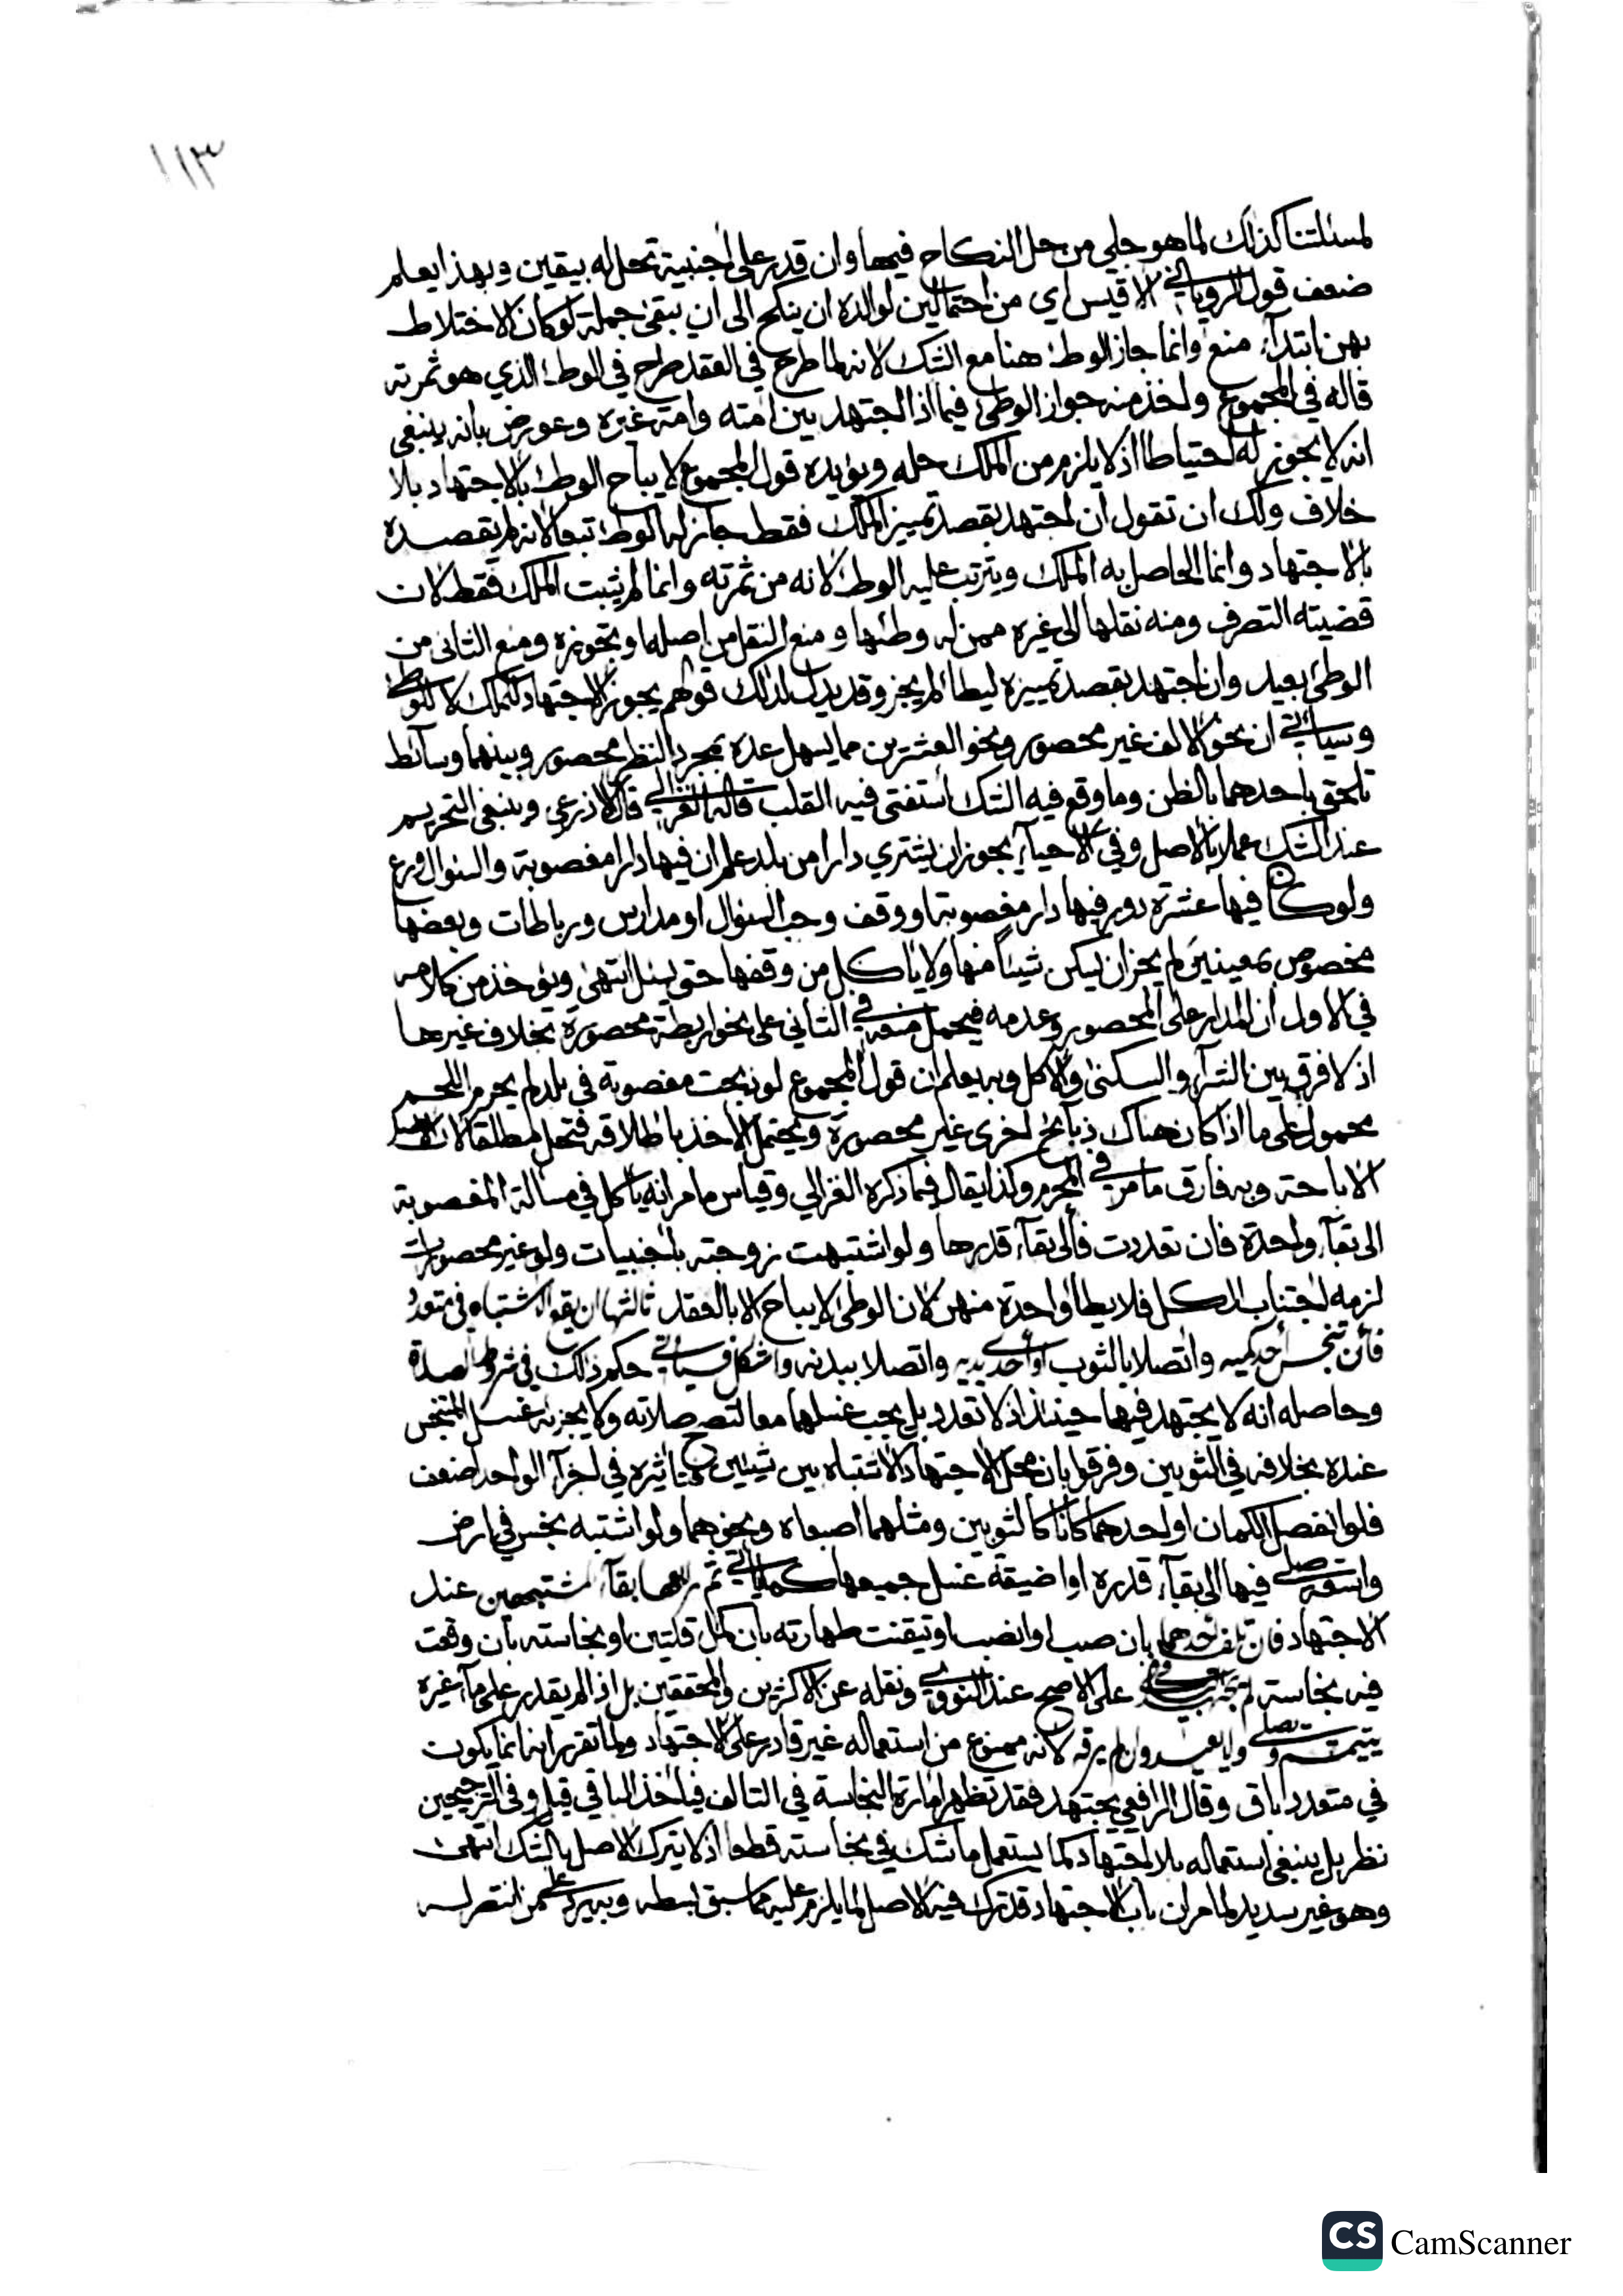 ١١٣
لمسئلتنا كذلك لما هو جلي من حل النكاح فيها وان قدر على اجنبية تحل له بيقين وبهذا يعلم
ضعف قول الروياني الاقيس اي من احتمالين لوالده ان ينكح الى ان يبقى جملة لو كان الاختلاط
بهن ابتداء منع وانما جاز الوطء هنا مع الشك لانه لما طرح في العقد طرح في الوطء الذي هو ثمرته
قاله في المجموع واخذ منه جواز الوطئ فيما اذا اجتهد بين امته وامة غيره وعورض بانه ينبغي
انه لا يجوز له احتياطا اذ لا يلزم من الملك حله ويؤيده قول المجموع لا يباح الوطء بالاجتهاد بلا
خلاف ولك ان تقول ان اجتهد بقصد تمييز الملك فقط جاز له الوطء تبعا لانه لم يقصده
بالاجتهاد وانما الحاصل به الملك ويترتب عليه الوطء لانه من ثمرته وانما لم يثبت الملك فقط لان
قضيته التصرف ومنه نقلها الى غيره ممن له وطئها ومنع النقل من اصله او تجويزه ومنع الثاني من
الوطئ بعيد وان اجتهد بقصد تمييزه ليطا لم يجز وقد يدل لذلك قولهم يجوز الاجتهاد للملك لا للوطئ
وسياتي ان نحو الالف غير محصور ونحو العشرين مما يسهل عده بمجرد النظر محصور وبينهما وسائط
تلحق باحدهما بالظن وما وقع فيه الشك استفتى فيه القلب قاله الغزالي قال الاذرعي وينبغي التحريم
عند الشك عملا بالاصل وفي الاحياء يجوز ان يشتري دارا من بلد علم ان فيها دارا مغصوبة والسؤال ورع
ولو كان فيها عشرة دور فيها دار مغصوبة او وقف وجب السؤال او مدارس ورباطات وبعضها
مخصوص بمعينين لم يجز ان يسكن شيئا منها ولا ياكل من وقفها حتى يسئل انتهى ويؤخذ من كلامه
في الاول ان المدار على المحصور وعدمه فيحمل منعه في الثاني على نحو اربطة محصورة بخلاف غيرها
اذ لا فرق بين الشراء والسكنى والاكل وبه يعلم ان قول المجموع لو ذبحت مغصوبة في بلد لم يحرم اللحم
محمول على ما اذا كان هناك ذبائح اخرى غير محصورة ويحتمل الاخذ باطلاقه فتحل مطلقا لان الاصل
الاباحة وبه فارق ما مر في المحرم وكذا يقال فيما ذكره الغزالي وقياس ما مر انه ياكل في مسالة المغصوبة
الى بقاء واحدة فان تعددت فالى بقاء قدرها ولو اشتبهت زوجته باجنبيات ولو غير محصورات
لزمه اجتناب الكل فلا يطا واحدة منهن لان الوطئ لا يباح الا بالعقد ثالثها ان يقع الاشتباه في متعدد
فان تنجس احد كميه واتصلا بالثوب او احدى يديه واتصلا ببدنه واشكل فسياتي حكم ذلك في شروط الصلاة
وحاصله انه لا يجتهد فيها حينئذ اذ لا تعدد بل يجب غسلها معا لتصح صلاته ولا يجزيه غسل المتنجس
عنده بخلافه في الثوبين وفرقوا بان محل الاجتهاد الاشتباه بين شيئين فتاثيره في اجزاء الواحد اضعف
فلو انفصل الكمان او احدهما كانا كالثوبين ومثلهما اصبعاه ونحوهما ولو اشتبه نجس في ارض
واسعة صلى فيها الى بقاء قدره او ضيقة غسل جميعها كما ياتي ثم رابعها بقاء المشتبهين عند
الاجتهاد فان تلف احدهما بان صب او انصب او تيقنت طهارته بان كمل قلتين او نجاسته بان وقعت
فيه نجاسة لم يجتهد في الباقي على الاصح عند النووي ونقله عن الاكثرين والمحققين بل اذا لم يقدر على ماء غيره
يتيمم ويصلي ولا يعيد وان لم يرقه لانه ممنوع من استعماله غير قادر على الاجتهاد ولما تقرر انه انما يكون
في متعدد باق وقال الرافعي يجتهد فقد تظهر امارة النجاسة في التالف فياخذ الباقي قيل وفي الترجيحين
نظر بل ينبغي استعماله بلا اجتهاد كما يستعمل ما شك في نجاسته قطعا اذ لا يترك الاصل بالشك انتهى
وهو غير سديد لما مر ان باب الاجتهاد قد ترك فيه الاصل لما يلزم عليه مما سبق بسطه وبه يرد على من انتصر له
CS CamScanner